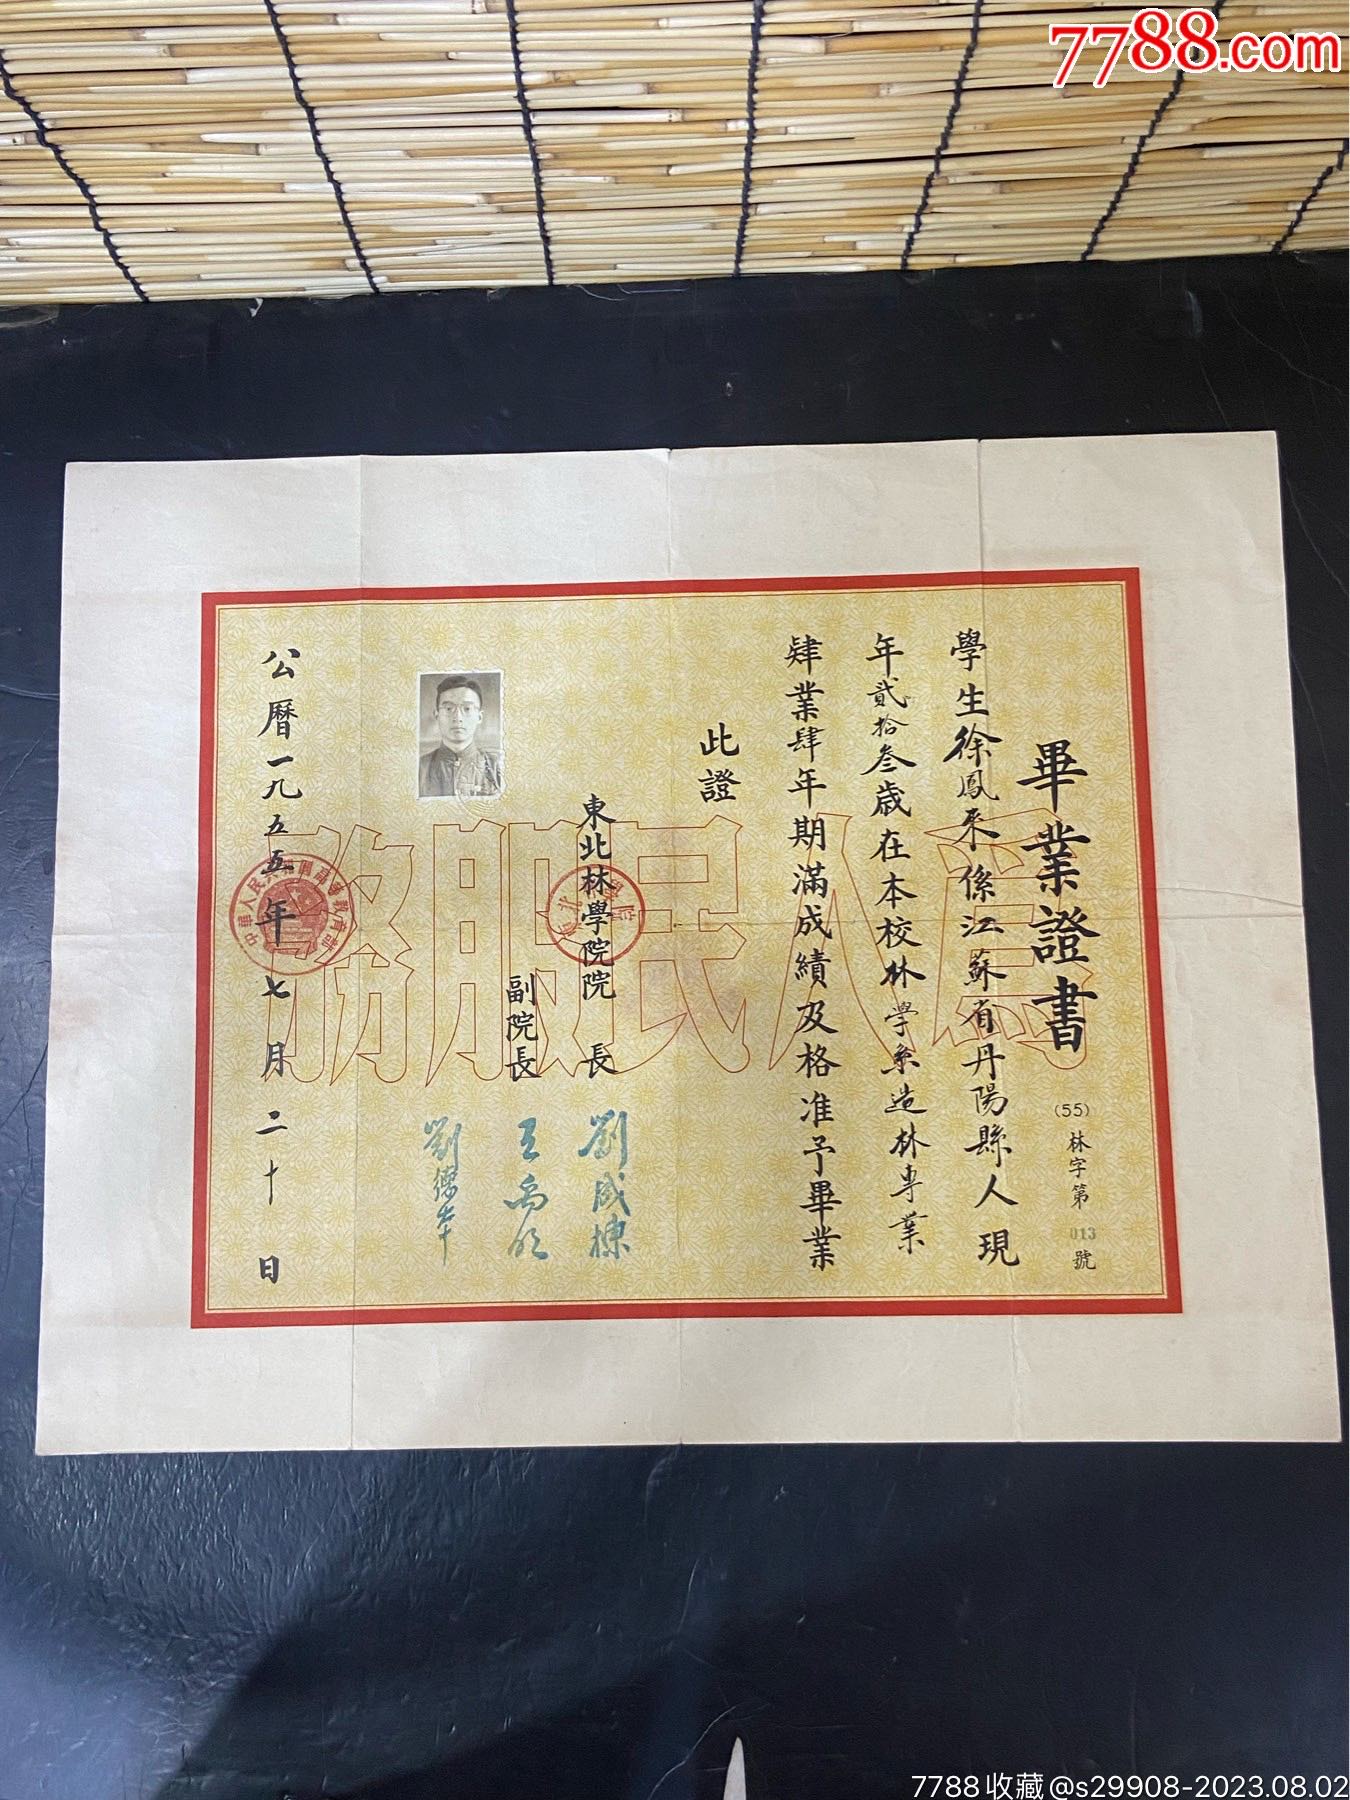 7788.com
畢業證書
(55)林字第013號
學生徐鳳來係江蘇省丹陽縣人現
年貳拾叁歲在本校林學系造林專業
肄業肆年期滿成績及格准予畢業
此證
東北林學院院長 劉成棟
副院長 王禹明
劉德本
公曆一九五五年七月二十日
為人民服務
中華人民共和國高等教育部
7788收藏@s29908-2023.08.02